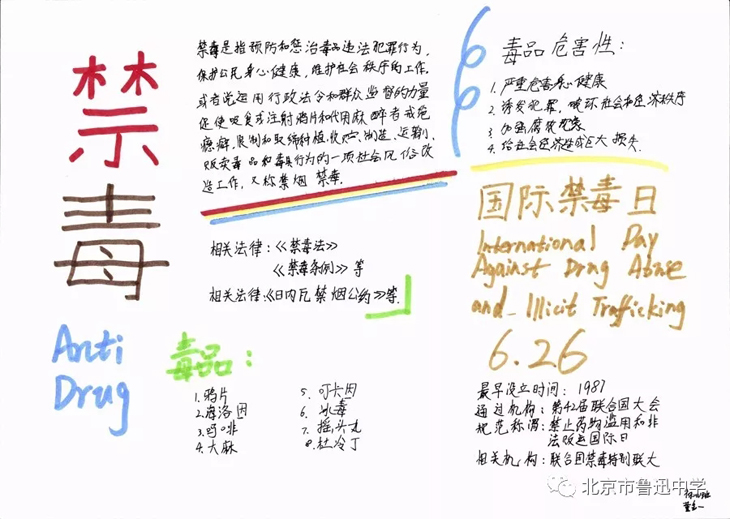 禁毒
Anti
Drug
禁毒是指预防和惩治毒品违法犯罪行为,
保护公民身心健康,维护社会秩序的工作。
或者说运用行政法令和群众监督的力量
促使吸食或注射鸦片和代用麻醉者戒绝
瘾癖,限制和取缔种植、收贮、制造、运输、
贩卖毒品和毒具行为的一项社会风俗改
造工作,又称禁烟 禁毒.
相关法律:《禁毒法》
《禁毒条例》等
相关法律:《日内瓦禁烟公约》等.
毒品:
1.鸦片
2.海洛因
3.吗啡
4.大麻
5.可卡因
6.冰毒
7.摇头丸
8.杜冷丁
66
毒品危害性:
1.严重危害身心健康
2.诱发犯罪,破坏社会和经济秩序
3.加剧腐败现象
4.给社会经济造成巨大损失.
国际禁毒日
International Day
Against Drug Abuse
and Illicit Trafficking
6.26
最早设立时间:1987
通过机构:第42届联合国大会
规范称谓:禁止药物滥用和非
法贩运国际日
相关机构:联合国禁毒特别联大
北京市鲁迅中学